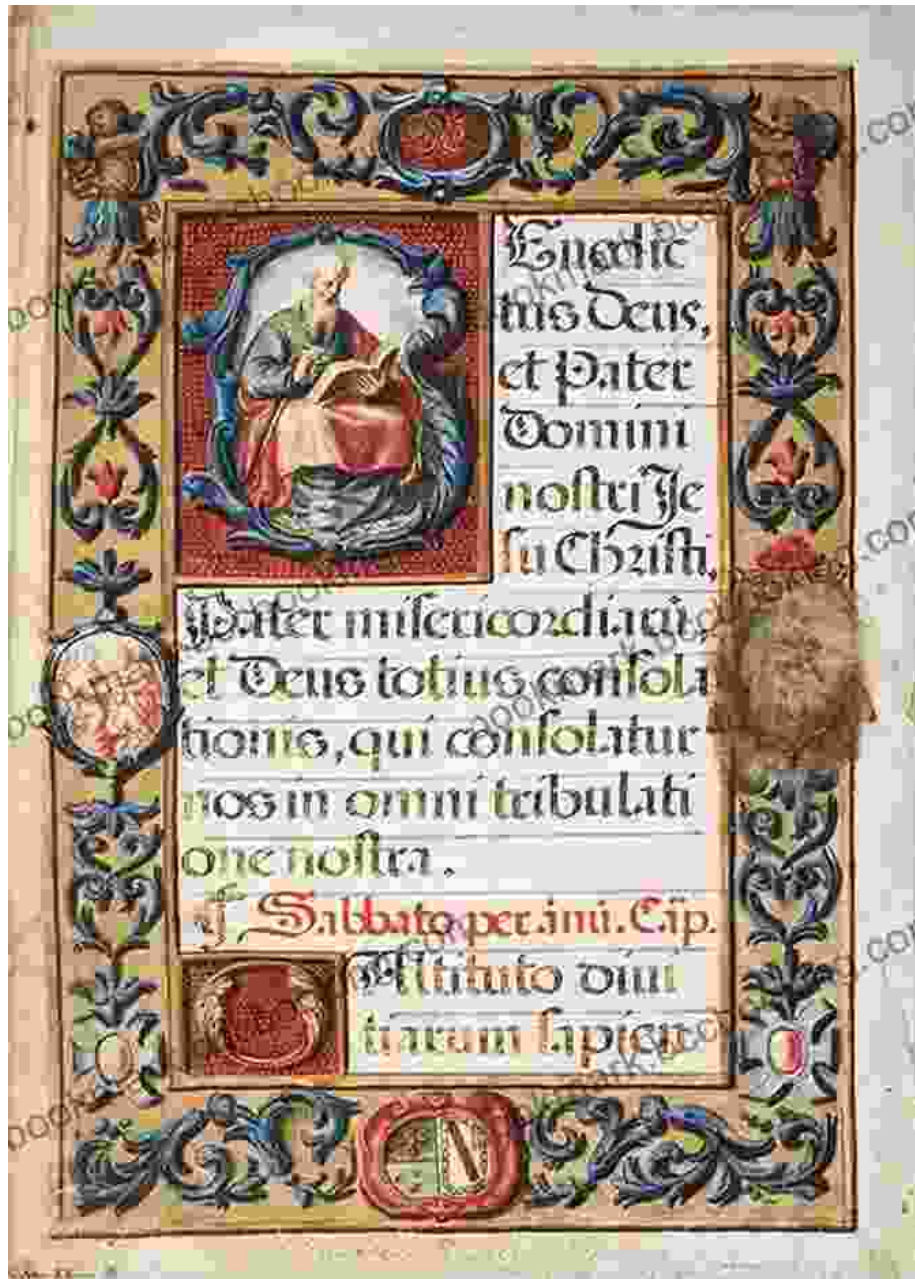 BEnedic
tus Deus,
et Pater
Domini
noſtri Je
ſu Chriſti,
Pater miſericordiarũ,
et Deus totius conſola
tionis, qui conſolatur
nos in omni tribulati
one noſtra.
Sabbato per.ãni. Cap.
O Altitudo divi
tiarum ſapien